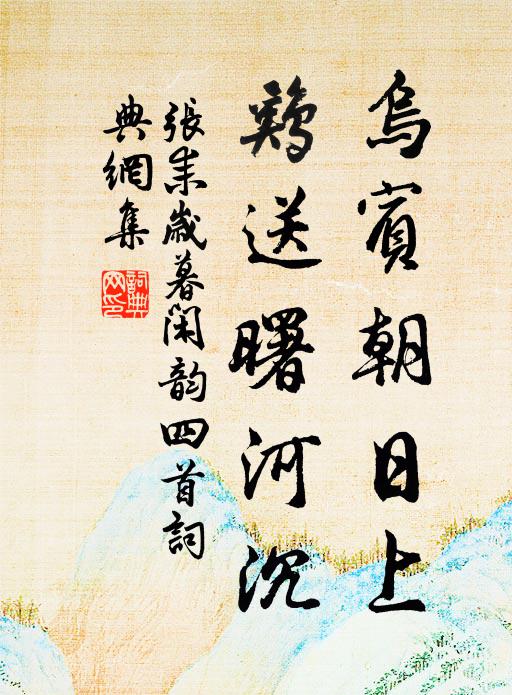 烏賓朝日上
鷄送曙河沉
張耒歲暮閑韵四首詞
典網集
詞典
网印